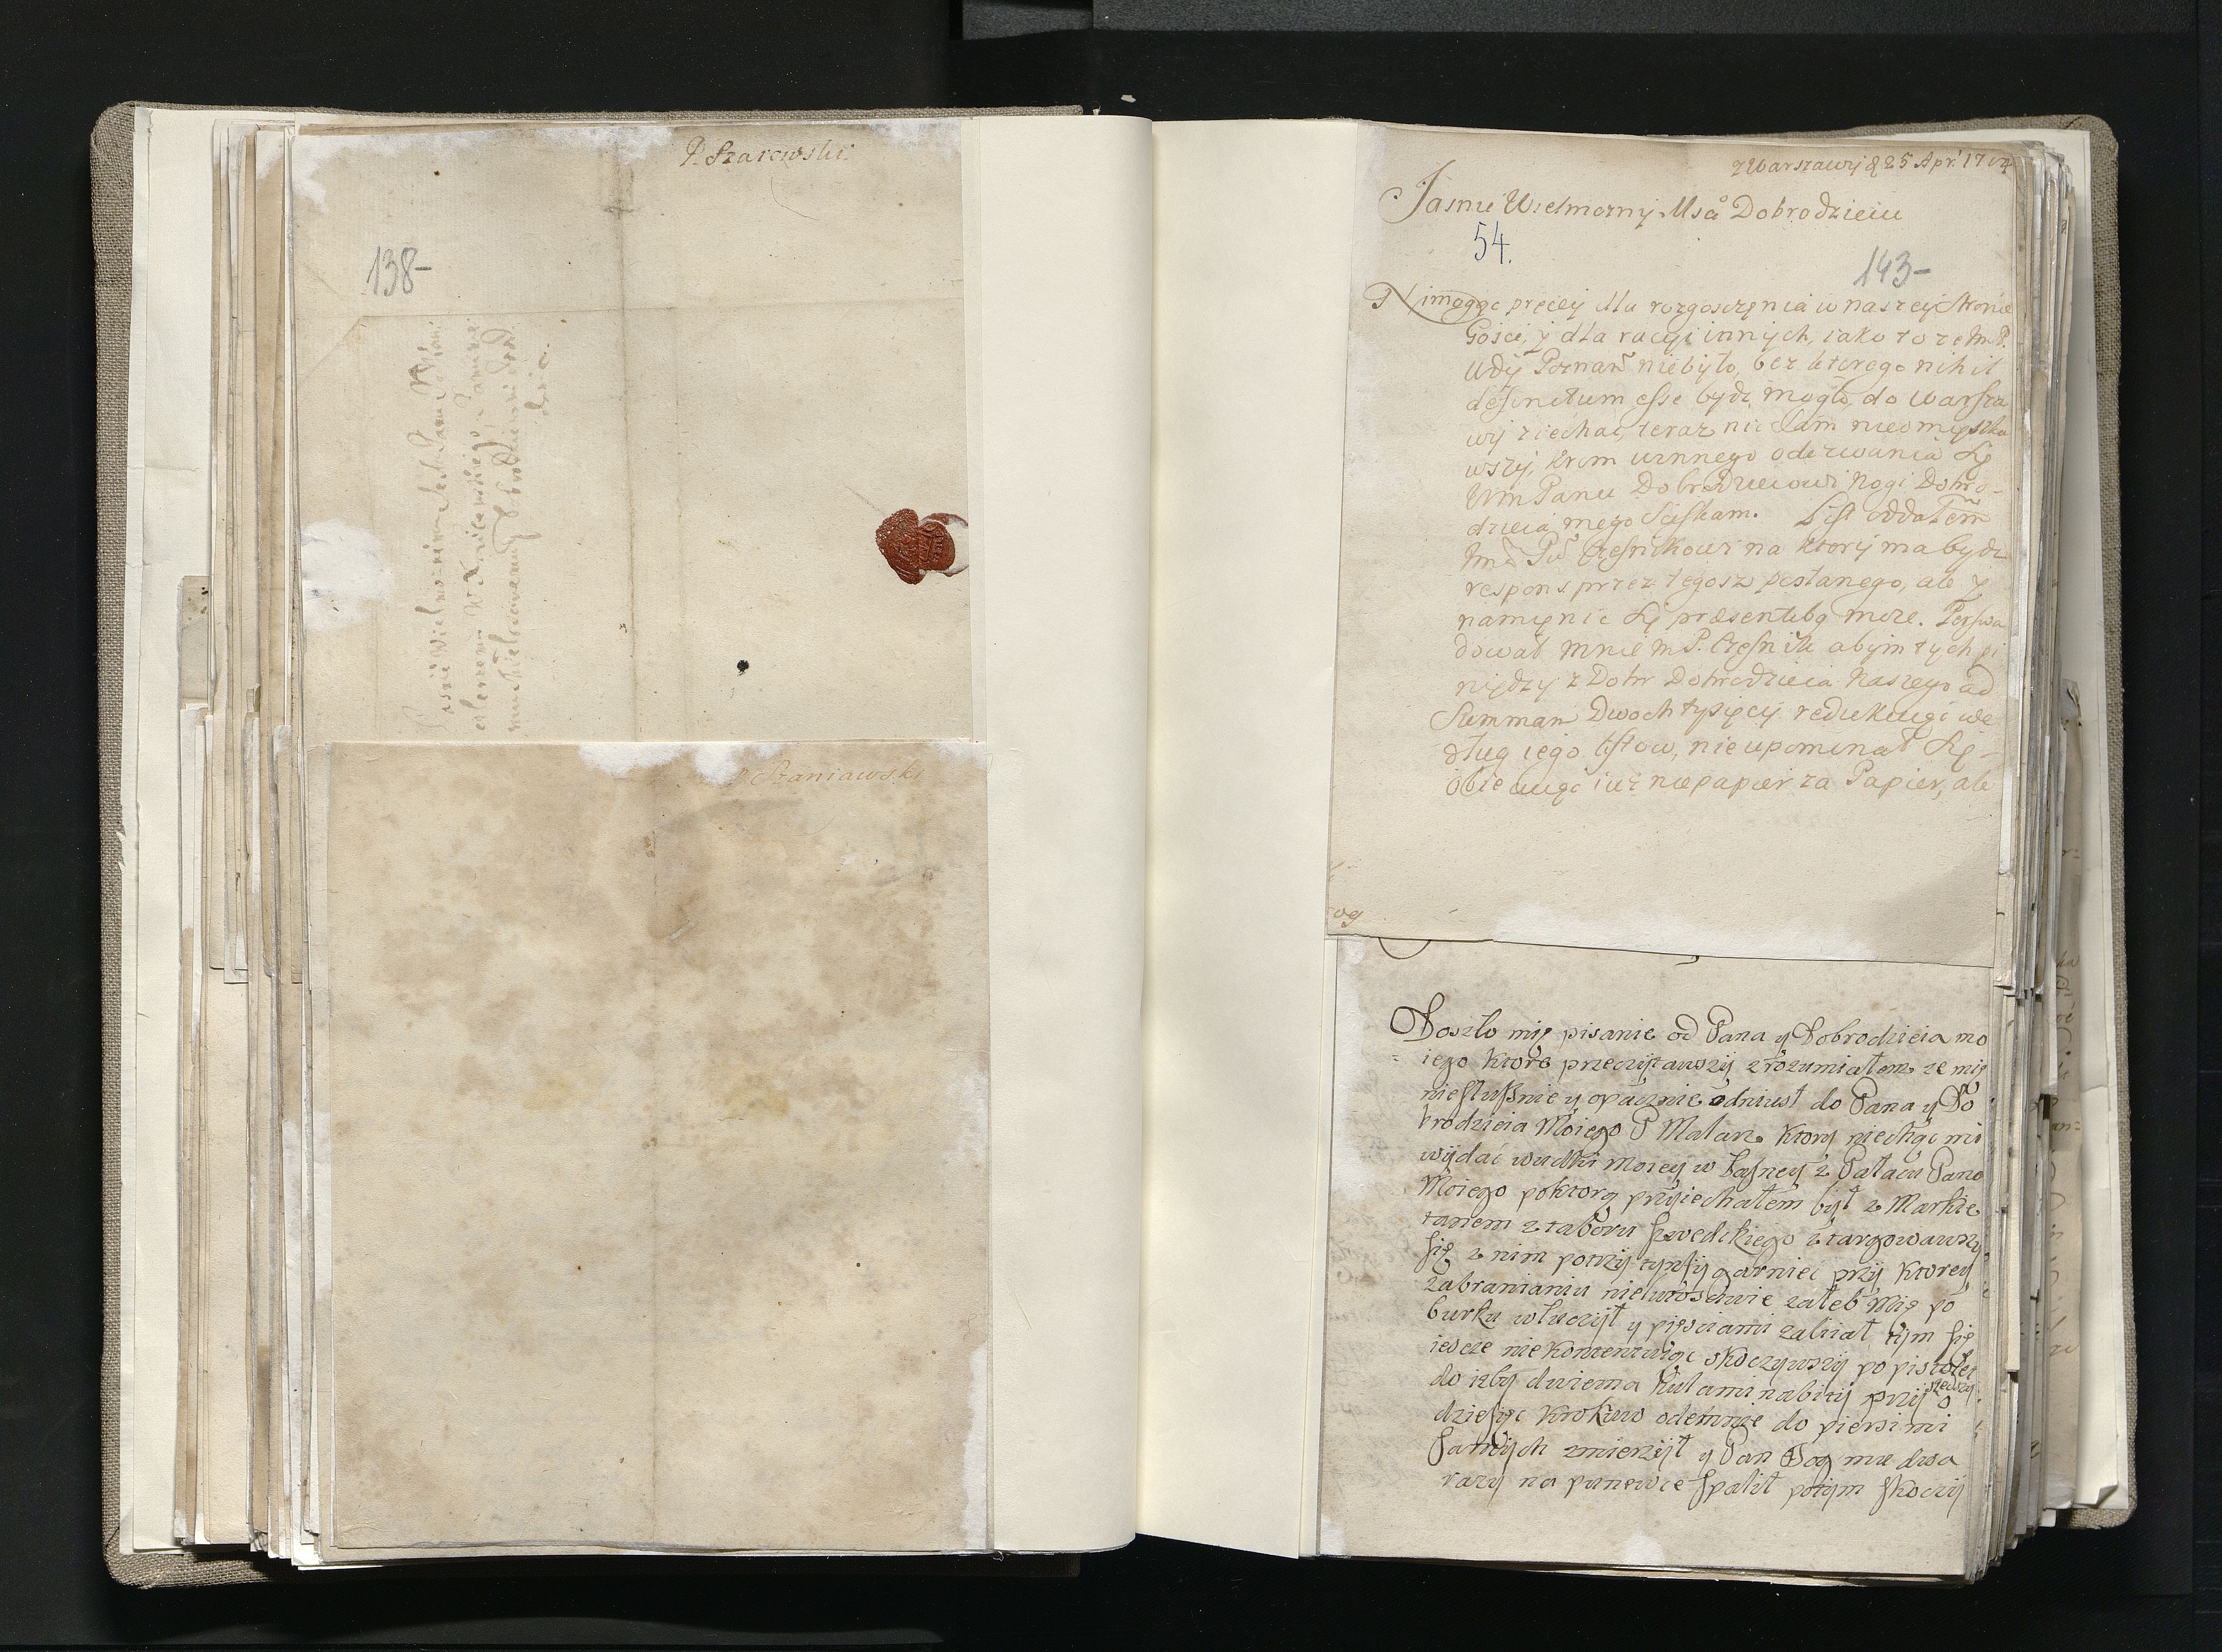 P. Szarowski
138-
Jasnie Wielmoznemu
P Szaniawski
z Warszawy d 25 Apr. 1704
Jasnie Wielmozny Msci Dobrodzieiu
54.
143-
Nimogąc pręcey dla rozgosczęnia w naszey stronie
Gosci, y dla racyi innych, iako to ze Im P.
Wdy Poznań niebyło, bez ktorego nihil
definitum esse bydz mogło, do Warsza
wy ziechac, teraz nic sam nieomięszka
wszy, krom unnego odezwania się
Wm Panu Dobrodzieiowi Nogi Dobro-
dzieia mego sciskam. List oddałem
Im Pu Czesnikowi na ktory ma bydz
respons przez tegosz posłanego, ale y
namęnic się præsentibg moze. Perswa
dował mnie Im P. Czesnik abym tych pi
niędzy z Dobr Dobrodzieia Naszego ad
Summam Dwoch tysięcy redukuiąc we
dług iego listow, nie upominał się
obiecuiąc iuz nie papier za Papier, ale
og
Doszło mię pisanie od Pana y Dobrodzieia mo
iego ktore przeczytawszy zrozumiałem ze mię
niesłusznie y opacznie odniusł do Pana y Do
brodzieia Moiego P Malarz ktory niechąc mi
wydać wudki moiey w łasney z Pałacu Pana
Moiego poktorą przyiechałem był z Markie
tanem z taboru szwedzkiego ztargowawszy
się z nim potrzy tynfy garniec przy ktorey
zabranianiu niewosciwie załeb mię po
burku włuczył y pięsciami zabiiał tym się
iescze niekontentuiąc skoczywszy po pistolet
do izby dwiema kulami nabity przyszedszy o
dziesięc krokuw odemnie do piersi mi
samych zmierzył y Pan Bog mu dwa
razy na panewce spalił potym skoczy